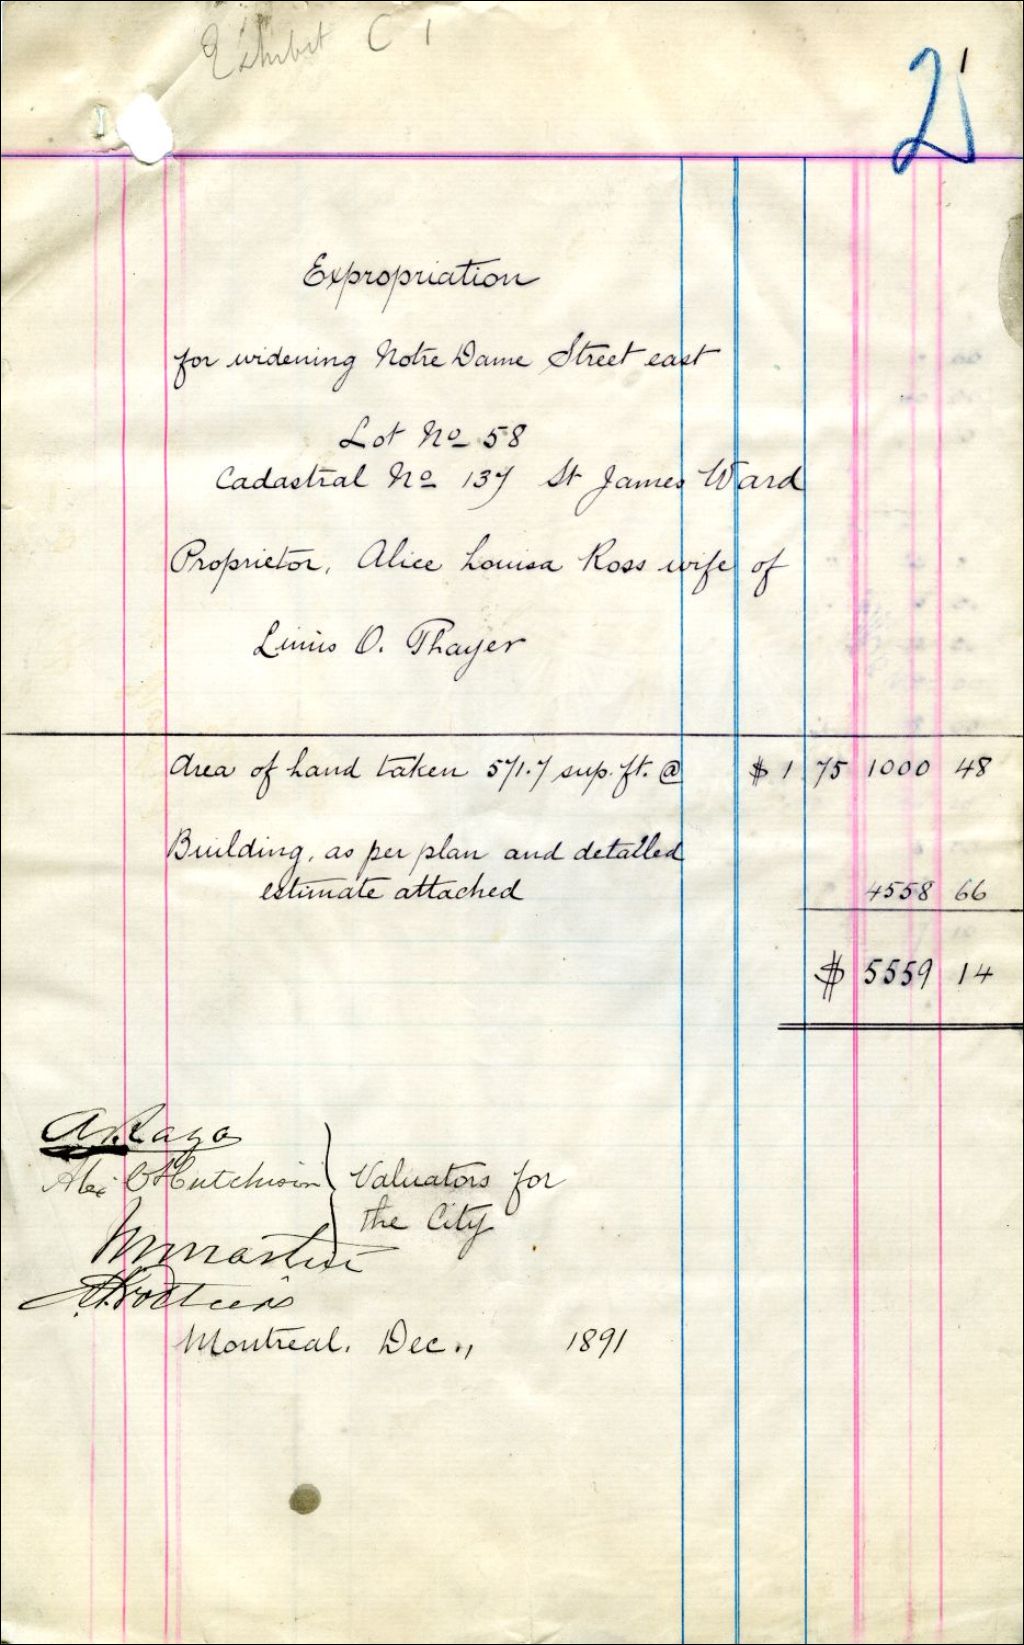 Exhibit C 1
21
Expropriation
for widening Notre Dame Street east
Lot No 58
Cadastral No 137 St James Ward
Proprietor, Alice Louisa Ross wife of
Linus O. Thayer
Area of Land taken 571.7 sup. ft. @ $ 1 75 1000 48
Building, as per plan and detailed
estimate attached 4558 66
$ 5559 14
Alex C Hutchison Valuators for
the City
Montreal. Dec., 1891